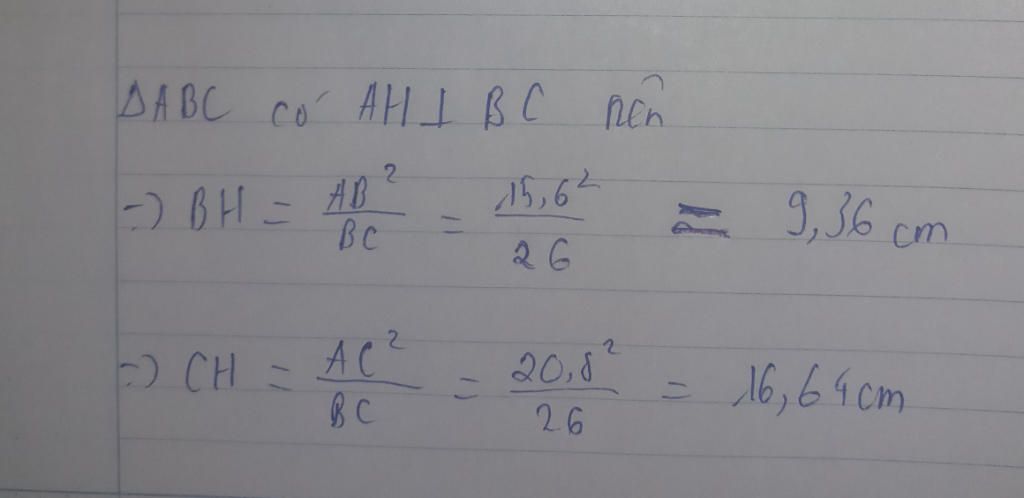 ΔABC có AH⊥ BC nên
=> BH = AB²/BC = 15,6²/26 = 9,36 cm
=> CH = AC²/BC = 20,8²/26 = 16,64cm